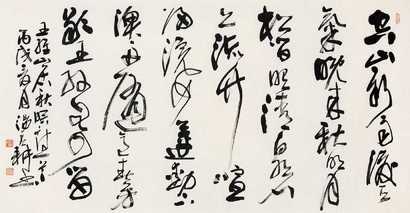 空山新雨後天
氣晚来秋明月
松間照清泉石
上流竹喧
歸浣女蓮動下
漁舟隨意春芳
歇王孫自可留
王維山居秋暝詩一首
丙戌月